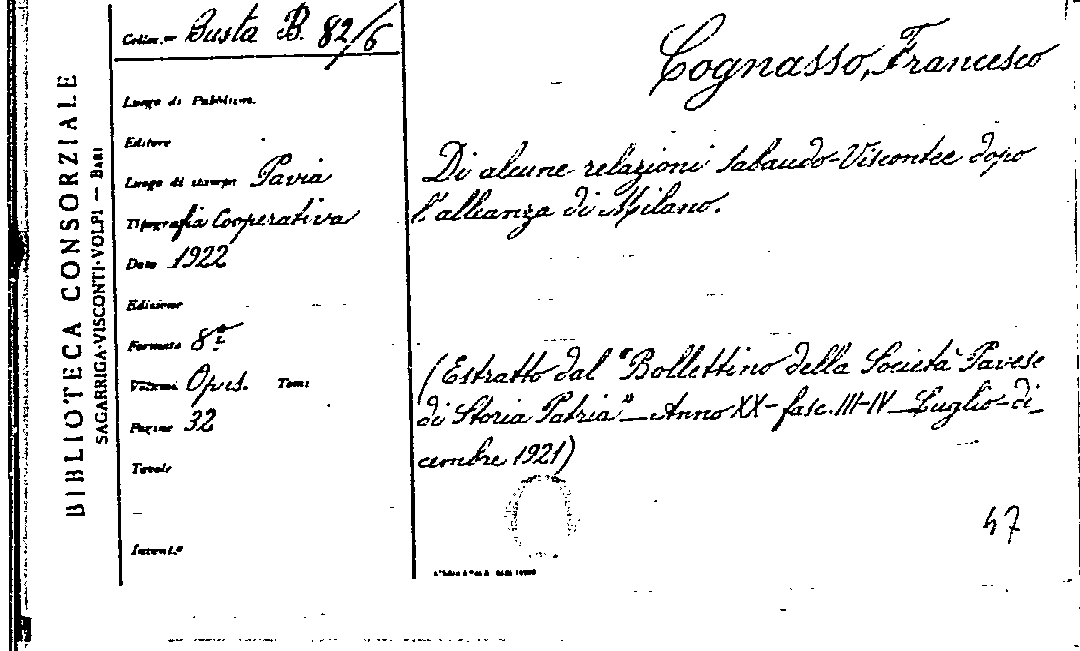 BIBLIOTECA CONSORZIALE
SAGARRIGA-VISCONTI-VOLPI — BARI
Busta B. 82/6
Luogo di Pubblicaz.
Editore
Luogo di stampa Pavia
Tipografia Cooperativa
Data 1922
Edizione
Formato 8º
Volumi Opus. Tomi
Pagine 32
Tavole
Invent.º
Cognasso, Francesco
Di alcune relazioni Sabaudo-Viscontee dopo
l'alleanza di Milano.
(Estratto dal "Bollettino della Società Pavese
di Storia Patria" _ Anno XX - fasc. III-IV _ Luglio-di_
cembre 1921)
47